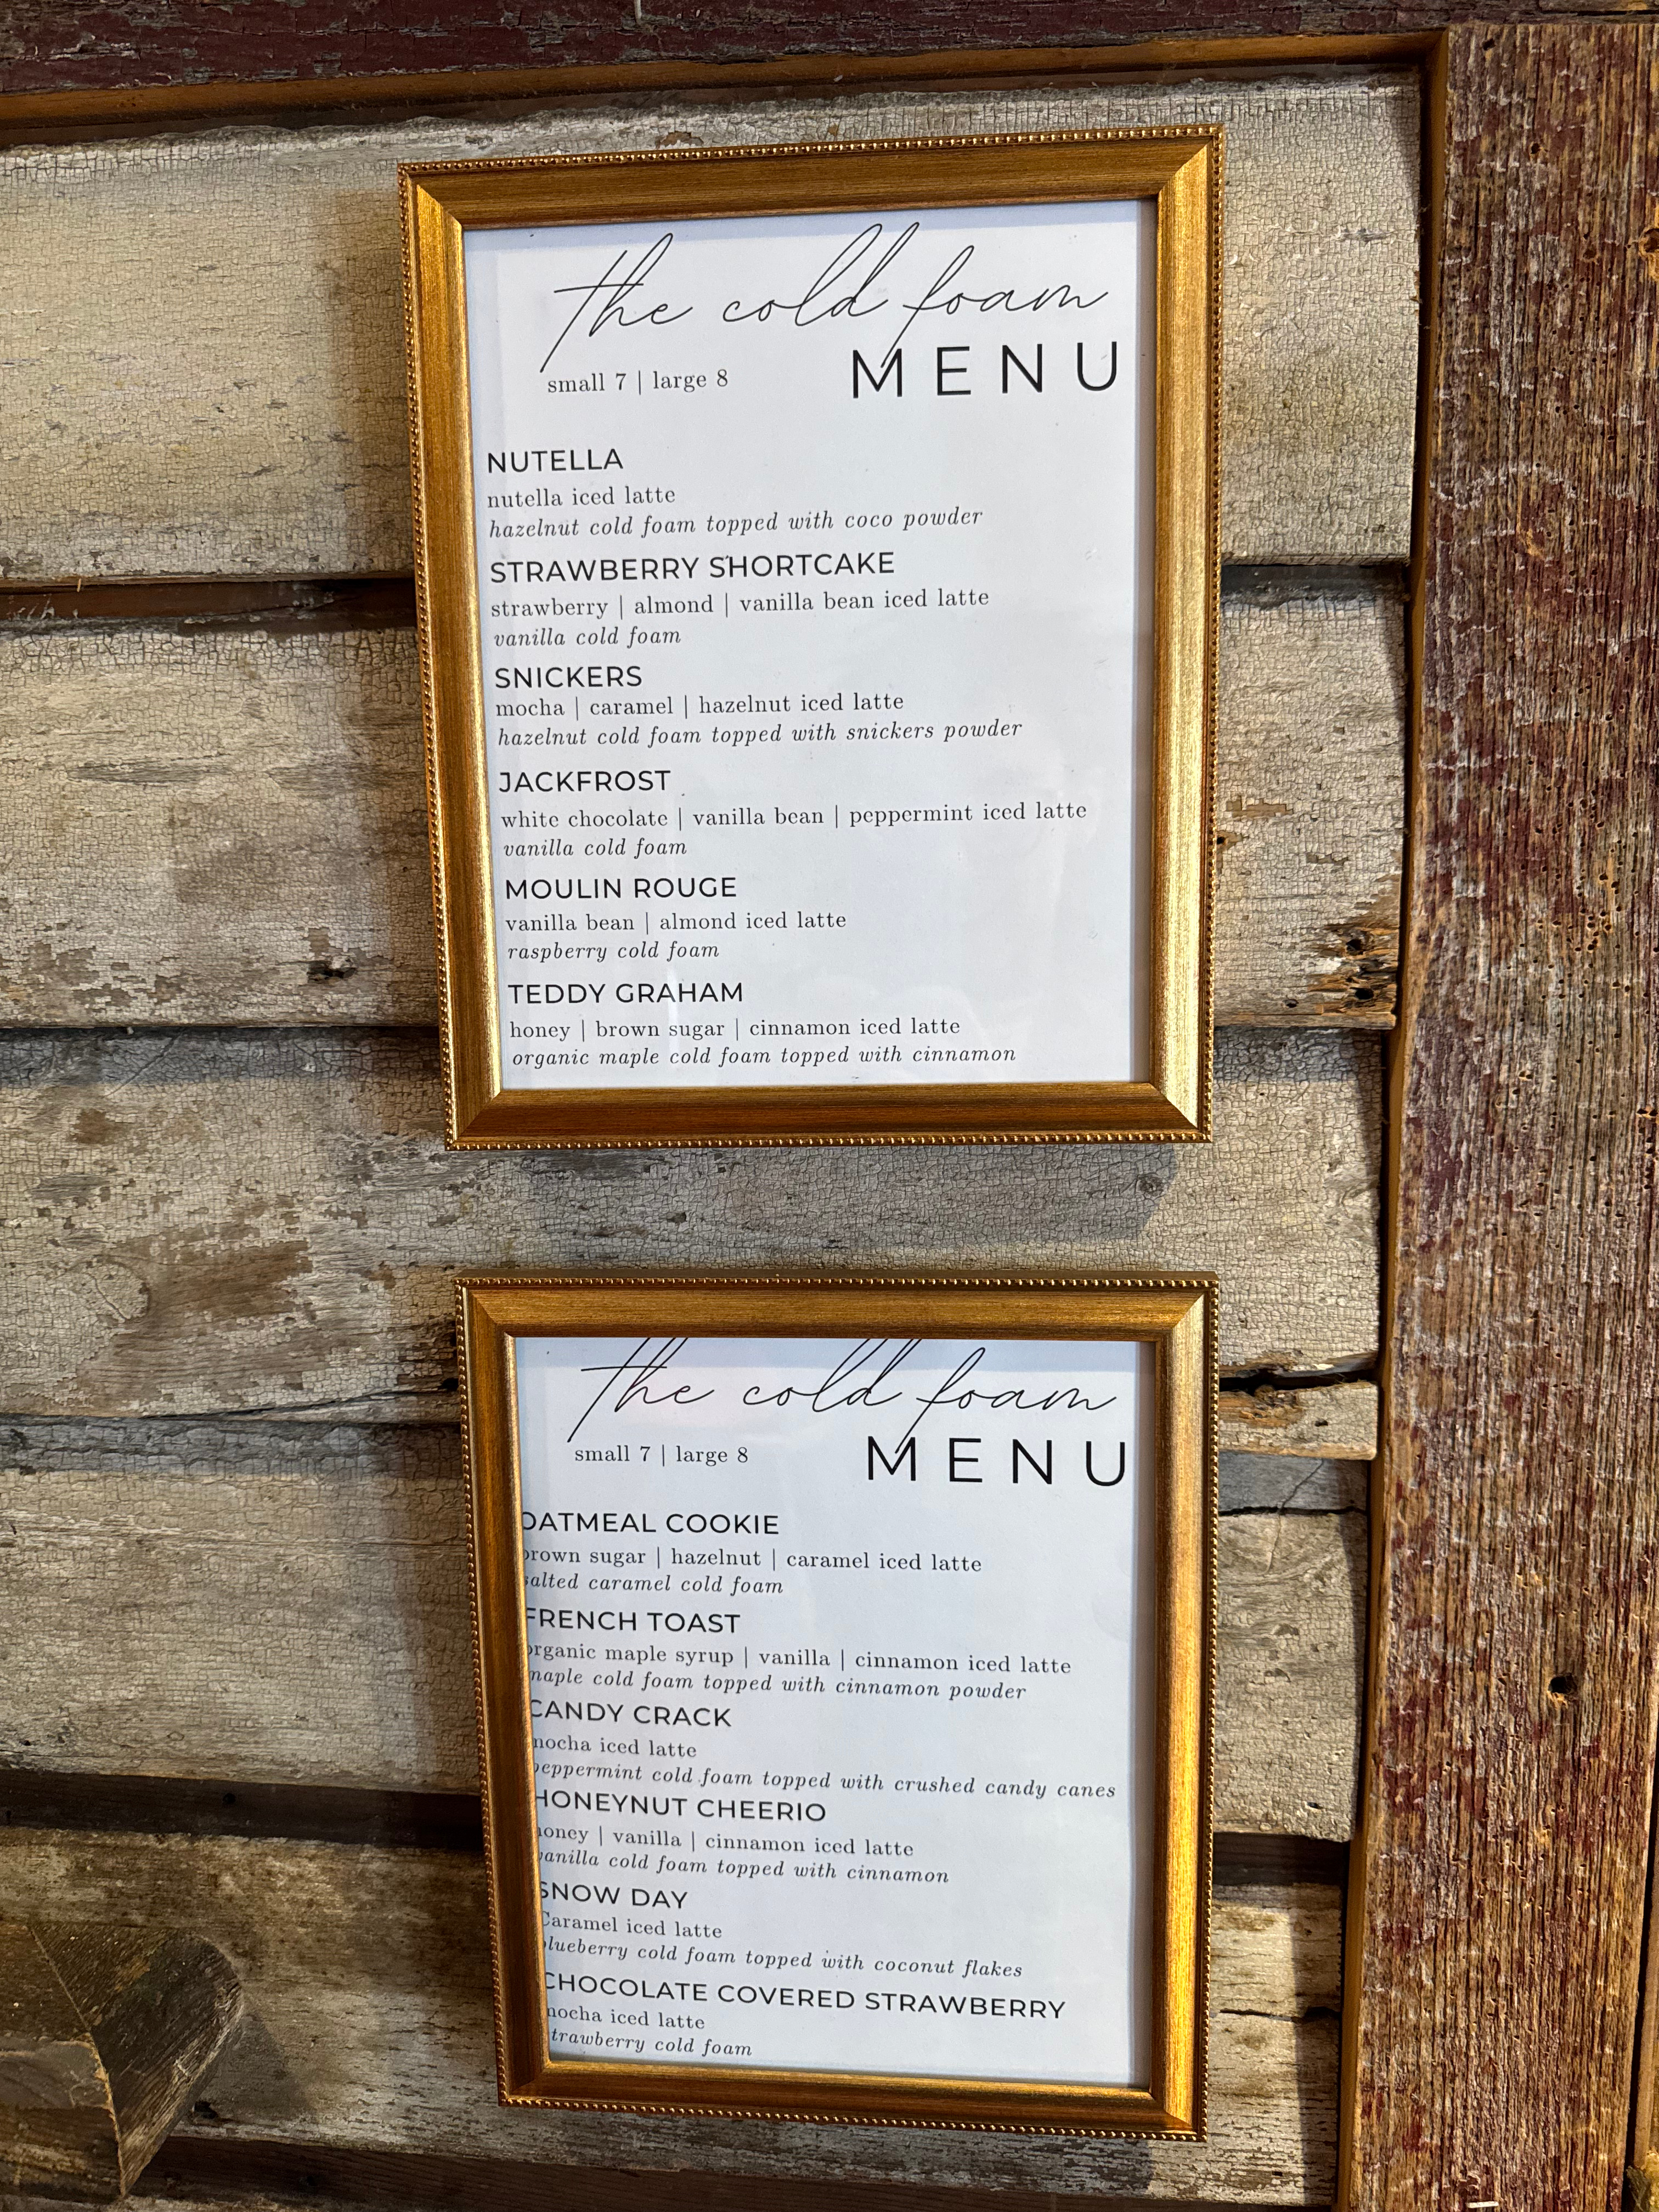 the cold foam
MENU
small 7 | large 8
NUTELLA
nutella iced latte
hazelnut cold foam topped with coco powder
STRAWBERRY SHORTCAKE
strawberry | almond | vanilla bean iced latte
vanilla cold foam
SNICKERS
mocha | caramel | hazelnut iced latte
hazelnut cold foam topped with snickers powder
JACKFROST
white chocolate | vanilla bean | peppermint iced latte
vanilla cold foam
MOULIN ROUGE
vanilla bean | almond iced latte
raspberry cold foam
TEDDY GRAHAM
honey | brown sugar | cinnamon iced latte
organic maple cold foam topped with cinnamon
the cold foam
MENU
small 7 | large 8
OATMEAL COOKIE
brown sugar | hazelnut | caramel iced latte
salted caramel cold foam
FRENCH TOAST
organic maple syrup | vanilla | cinnamon iced latte
maple cold foam topped with cinnamon powder
CANDY CRACK
mocha iced latte
peppermint cold foam topped with crushed candy canes
HONEYNUT CHEERIO
honey | vanilla | cinnamon iced latte
vanilla cold foam topped with cinnamon
SNOW DAY
Caramel iced latte
blueberry cold foam topped with coconut flakes
CHOCOLATE COVERED STRAWBERRY
mocha iced latte
strawberry cold foam